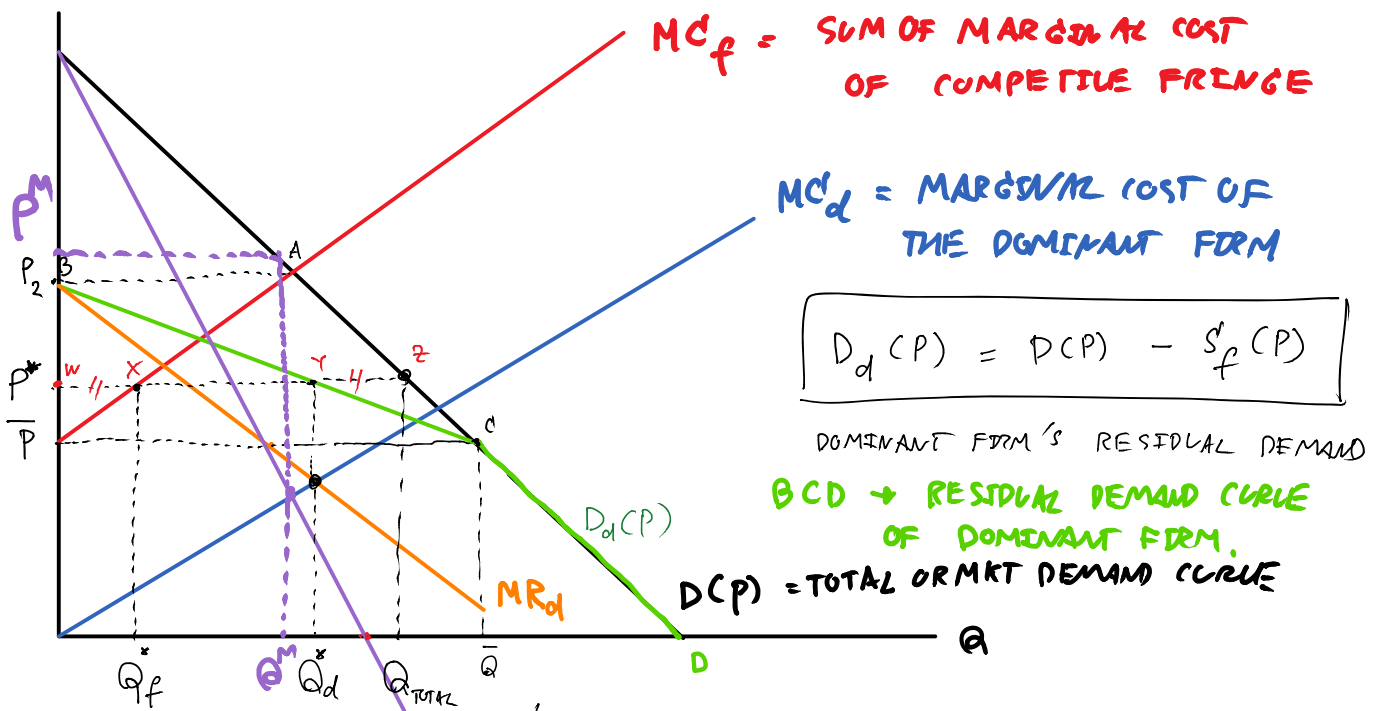 MC_f = SUM OF MARGINAL COST
OF COMPETILE FRINGE
MC_d = MARGINAL COST OF
THE DOMINANT FIRM
D_d(P) = D(P) - S_f(P)
DOMINANT FIRM'S RESIDUAL DEMAND
BCD → RESIDUAL DEMAND CURVE
OF DOMINANT FIRM.
D(P) = TOTAL OR MKT DEMAND CURVE
D_d(P)
MR_d
P^M
P_2
B
A
P*
W
X
Y
Z
P̅
C
Q*_f
Q^M
Q*_d
Q_TOTAL
Q̅
D
Q